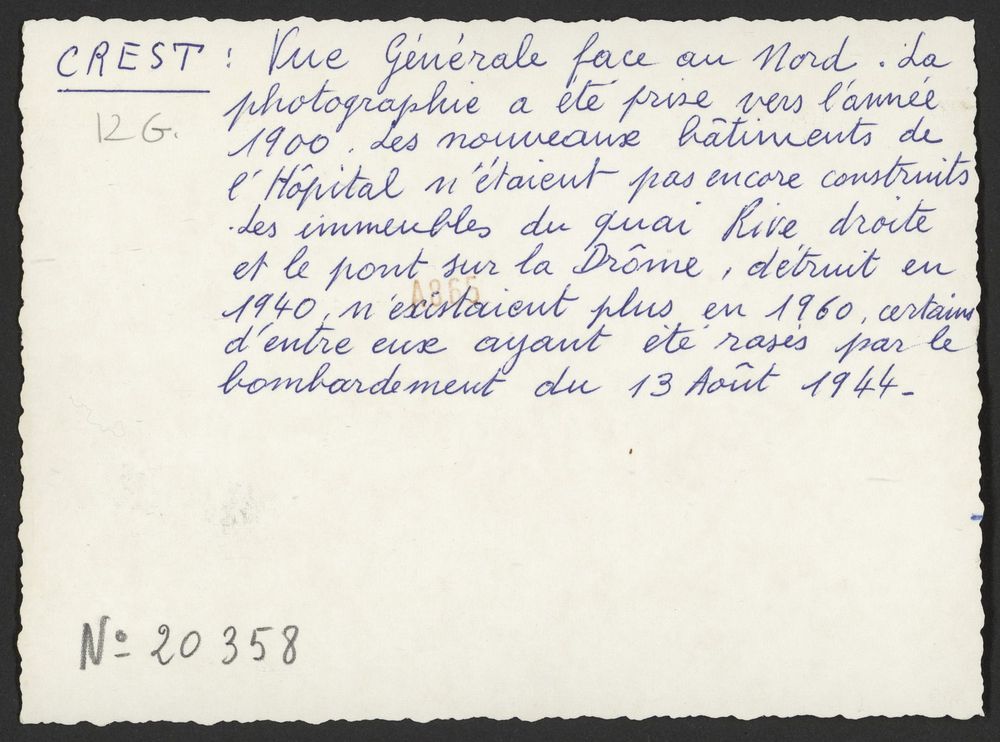 CREST : Vue Générale face au Nord. La
photographie a été prise vers l'année
12 G.
1900. Les nouveaux bâtiments de
l'Hôpital n'étaient pas encore construits
Les immeubles du quai Rive droite
et le pont sur la Drôme, détruit en
A865
1940, n'existaient plus en 1960, certains
d'entre eux ayant été rasés par le
bombardement du 13 Août 1944-
Nº 20 358